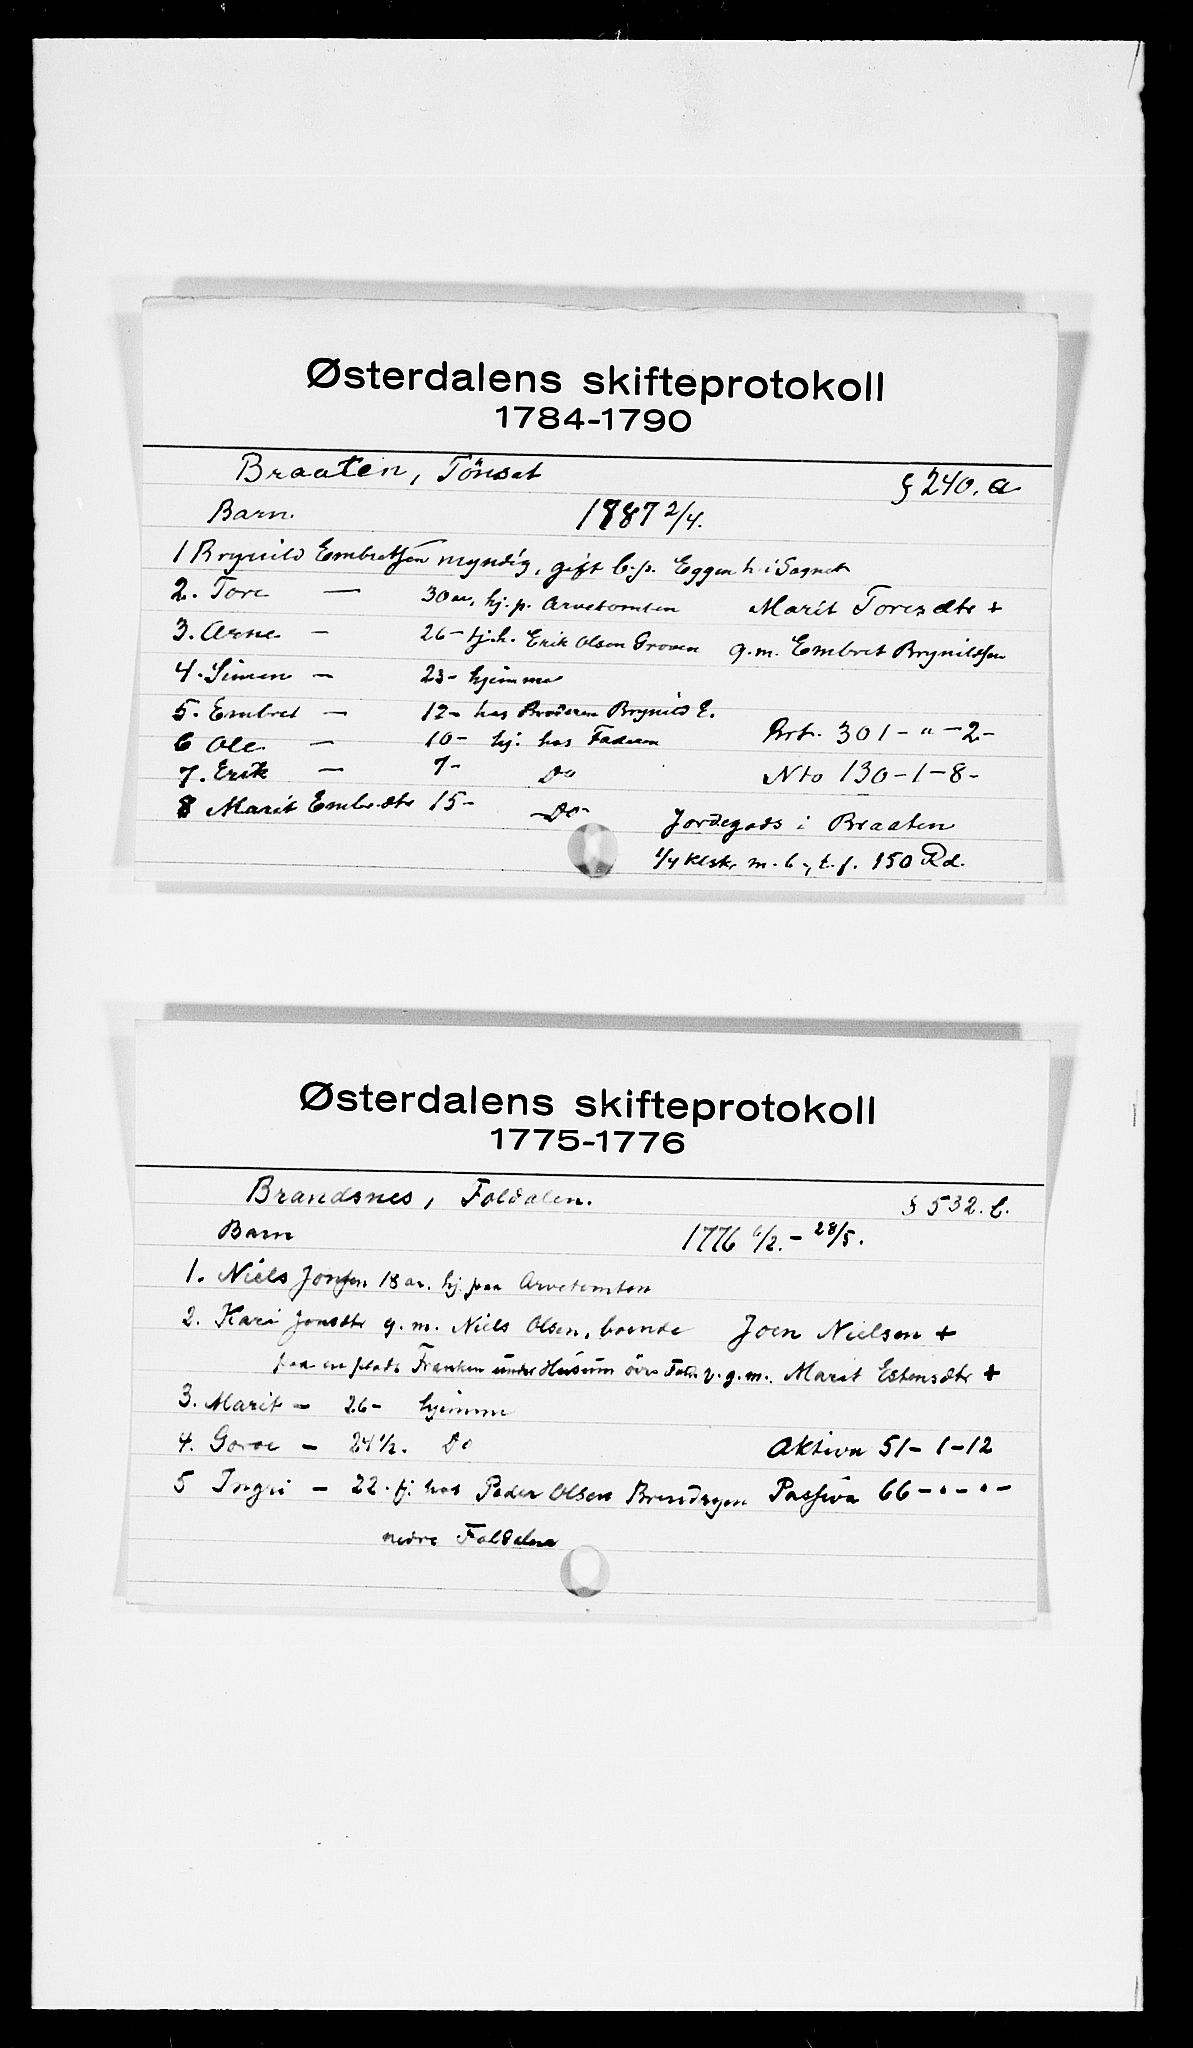 Østerdalens skifteprotokoll
1784-1790
Braaten, Tönset § 240. a
Barn. 1787 2/4.
1 Brynild Embretsen myndig, gift b. p. Eggen h. i Sognet
2. Tore — 30 aar, hj. p. Arvetomten Marit Toresdtr +
3. Arne — 26 - tj. h. Erik Olsen Groven g.m. Embret Brynildsen
4. Simen — 23 - hjemme
5. Embret — 12 - hos Broderen Brynild E.
6 Ole — 10 - hj. hos Faderen Brt. 301 - " - 2 -
7. Erik — 7 - Do Nto 130 - 1 - 8 -
8 Marit Embr.dtr 15 - Do - Jordegods i Braaten
1/4 klskr. m. b., t. f. 150 Rd.
Østerdalens skifteprotokoll
1775-1776
Brandsnes, Foldalen. § 532. b.
Barn 1776 6/2. - 28/5.
1. Niels Jonsen 18 aar. hj. paa Arvetomten
2. Kari Jonsdtr g. m. Niels Olsen, boende Joen Nielsen +
paa en plads Franken under Husum övre Fold. v. g. m. Marit Estensdtr +
3. Marit - 26 - hjemme
4. Goroe - 24 1/2. Do Aktiva 51 - 1 - 12
5 Ingri - 22. tj. hos Peder Olsen Brendryen Passiva 66 - " - " -
nedre Foldalen